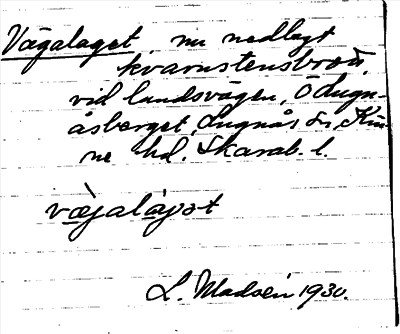 Vägalaget, nu nedlagt
kvarnstensbrott,
vid landsvägen, Ö Lugn-
åsberget, Lugnås sn, Kin-
ne hd. Skarab. l.
L. Madsén 1930.